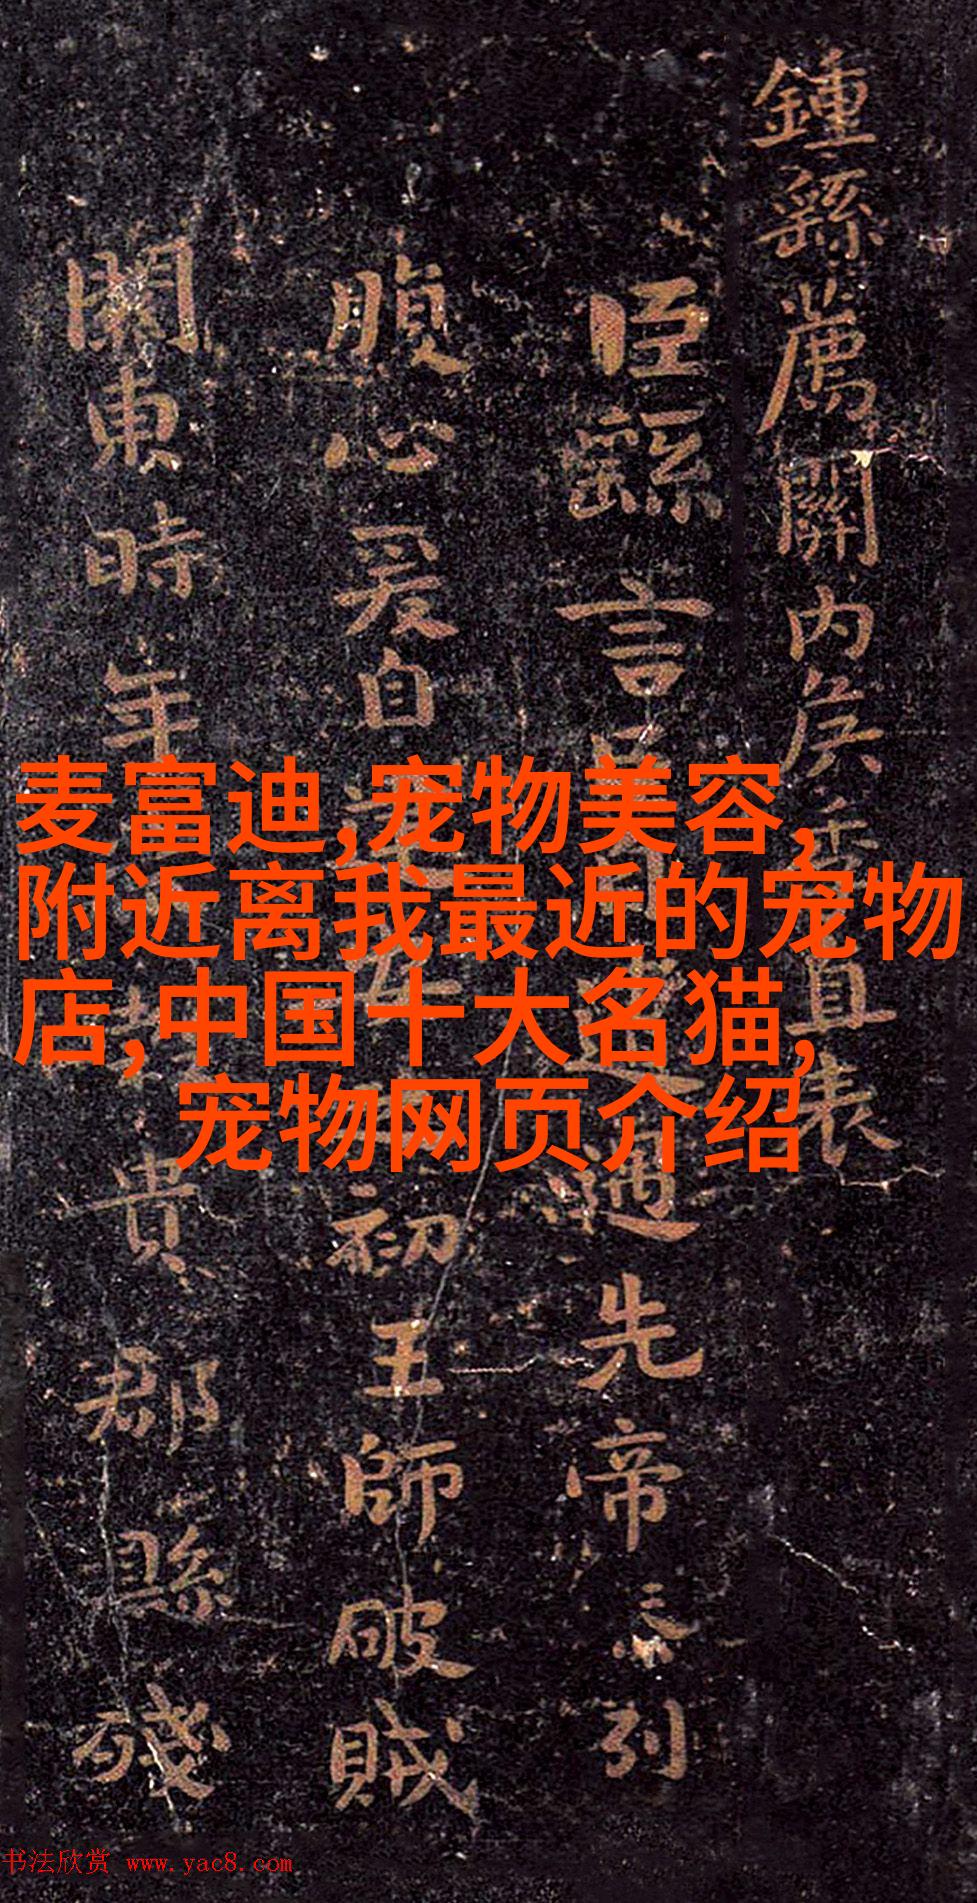 鍾繇薦關內侯季直表
臣繇言臣自遭遇先帝忝列
腹心爰自建安之初王師破賊
關東時年荒穀貴郡縣殘
麦富迪,宠物美容,
附近离我最近的宠物
店,中国十大名猫,
宠物网页介绍
书法欣赏 www.yac8.com